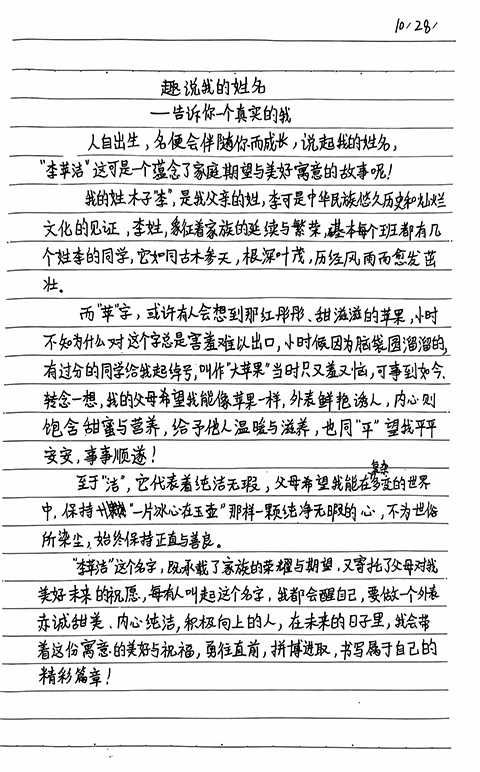 10/28/
趣说我的姓名
——告诉你一个真实的我
人自出生，名便会伴随你而成长，说起我的姓名，
"李苹洁"这可是一个蕴念了家庭期望与美好寓意的故事呢！
我的姓木子"李"，是我父亲的姓，李可是中华民族悠久历史和灿烂
文化的见证，李姓，象征着家族的延续与繁荣，基本每个班都有几
个姓李的同学，它如同古木参天，根深叶茂，历经风雨而愈发茁
壮。
而"苹"字，或许有人会想到那红彤彤、甜滋滋的苹果，小时
不知为什么对这个字总是害羞难以出口，小时候因为脑袋圆溜溜的，
有过分的同学给我起绰号，叫作"大苹果"当时只又羞又恼，可事到如今，
转念一想，我的父母希望我能像苹果一样，外表鲜艳诱人，内心则
饱含甜蜜与营养，给予他人温暖与滋养，也同"平"望我平平
安安，事事顺遂！
至于"洁"，它代表着纯洁无瑕，父母希望我能在复杂多变的世界
中，保持"一片冰心在玉壶"那样一颗纯净无暇的心，不为世俗
所染尘，始终保持正直与善良。
"李苹洁"这个名字，既承载了家族的荣耀与期望，又寄托了父母对我
美好未来的祝愿，每有人叫起这个名字，我都会醒自己，要做一个外表
赤诚甜美、内心纯洁，积极向上的人，在未来的日子里，我会带
着这份寓意的美好与祝福，勇往直前，拼博进取，书写属于自己的
精彩篇章！